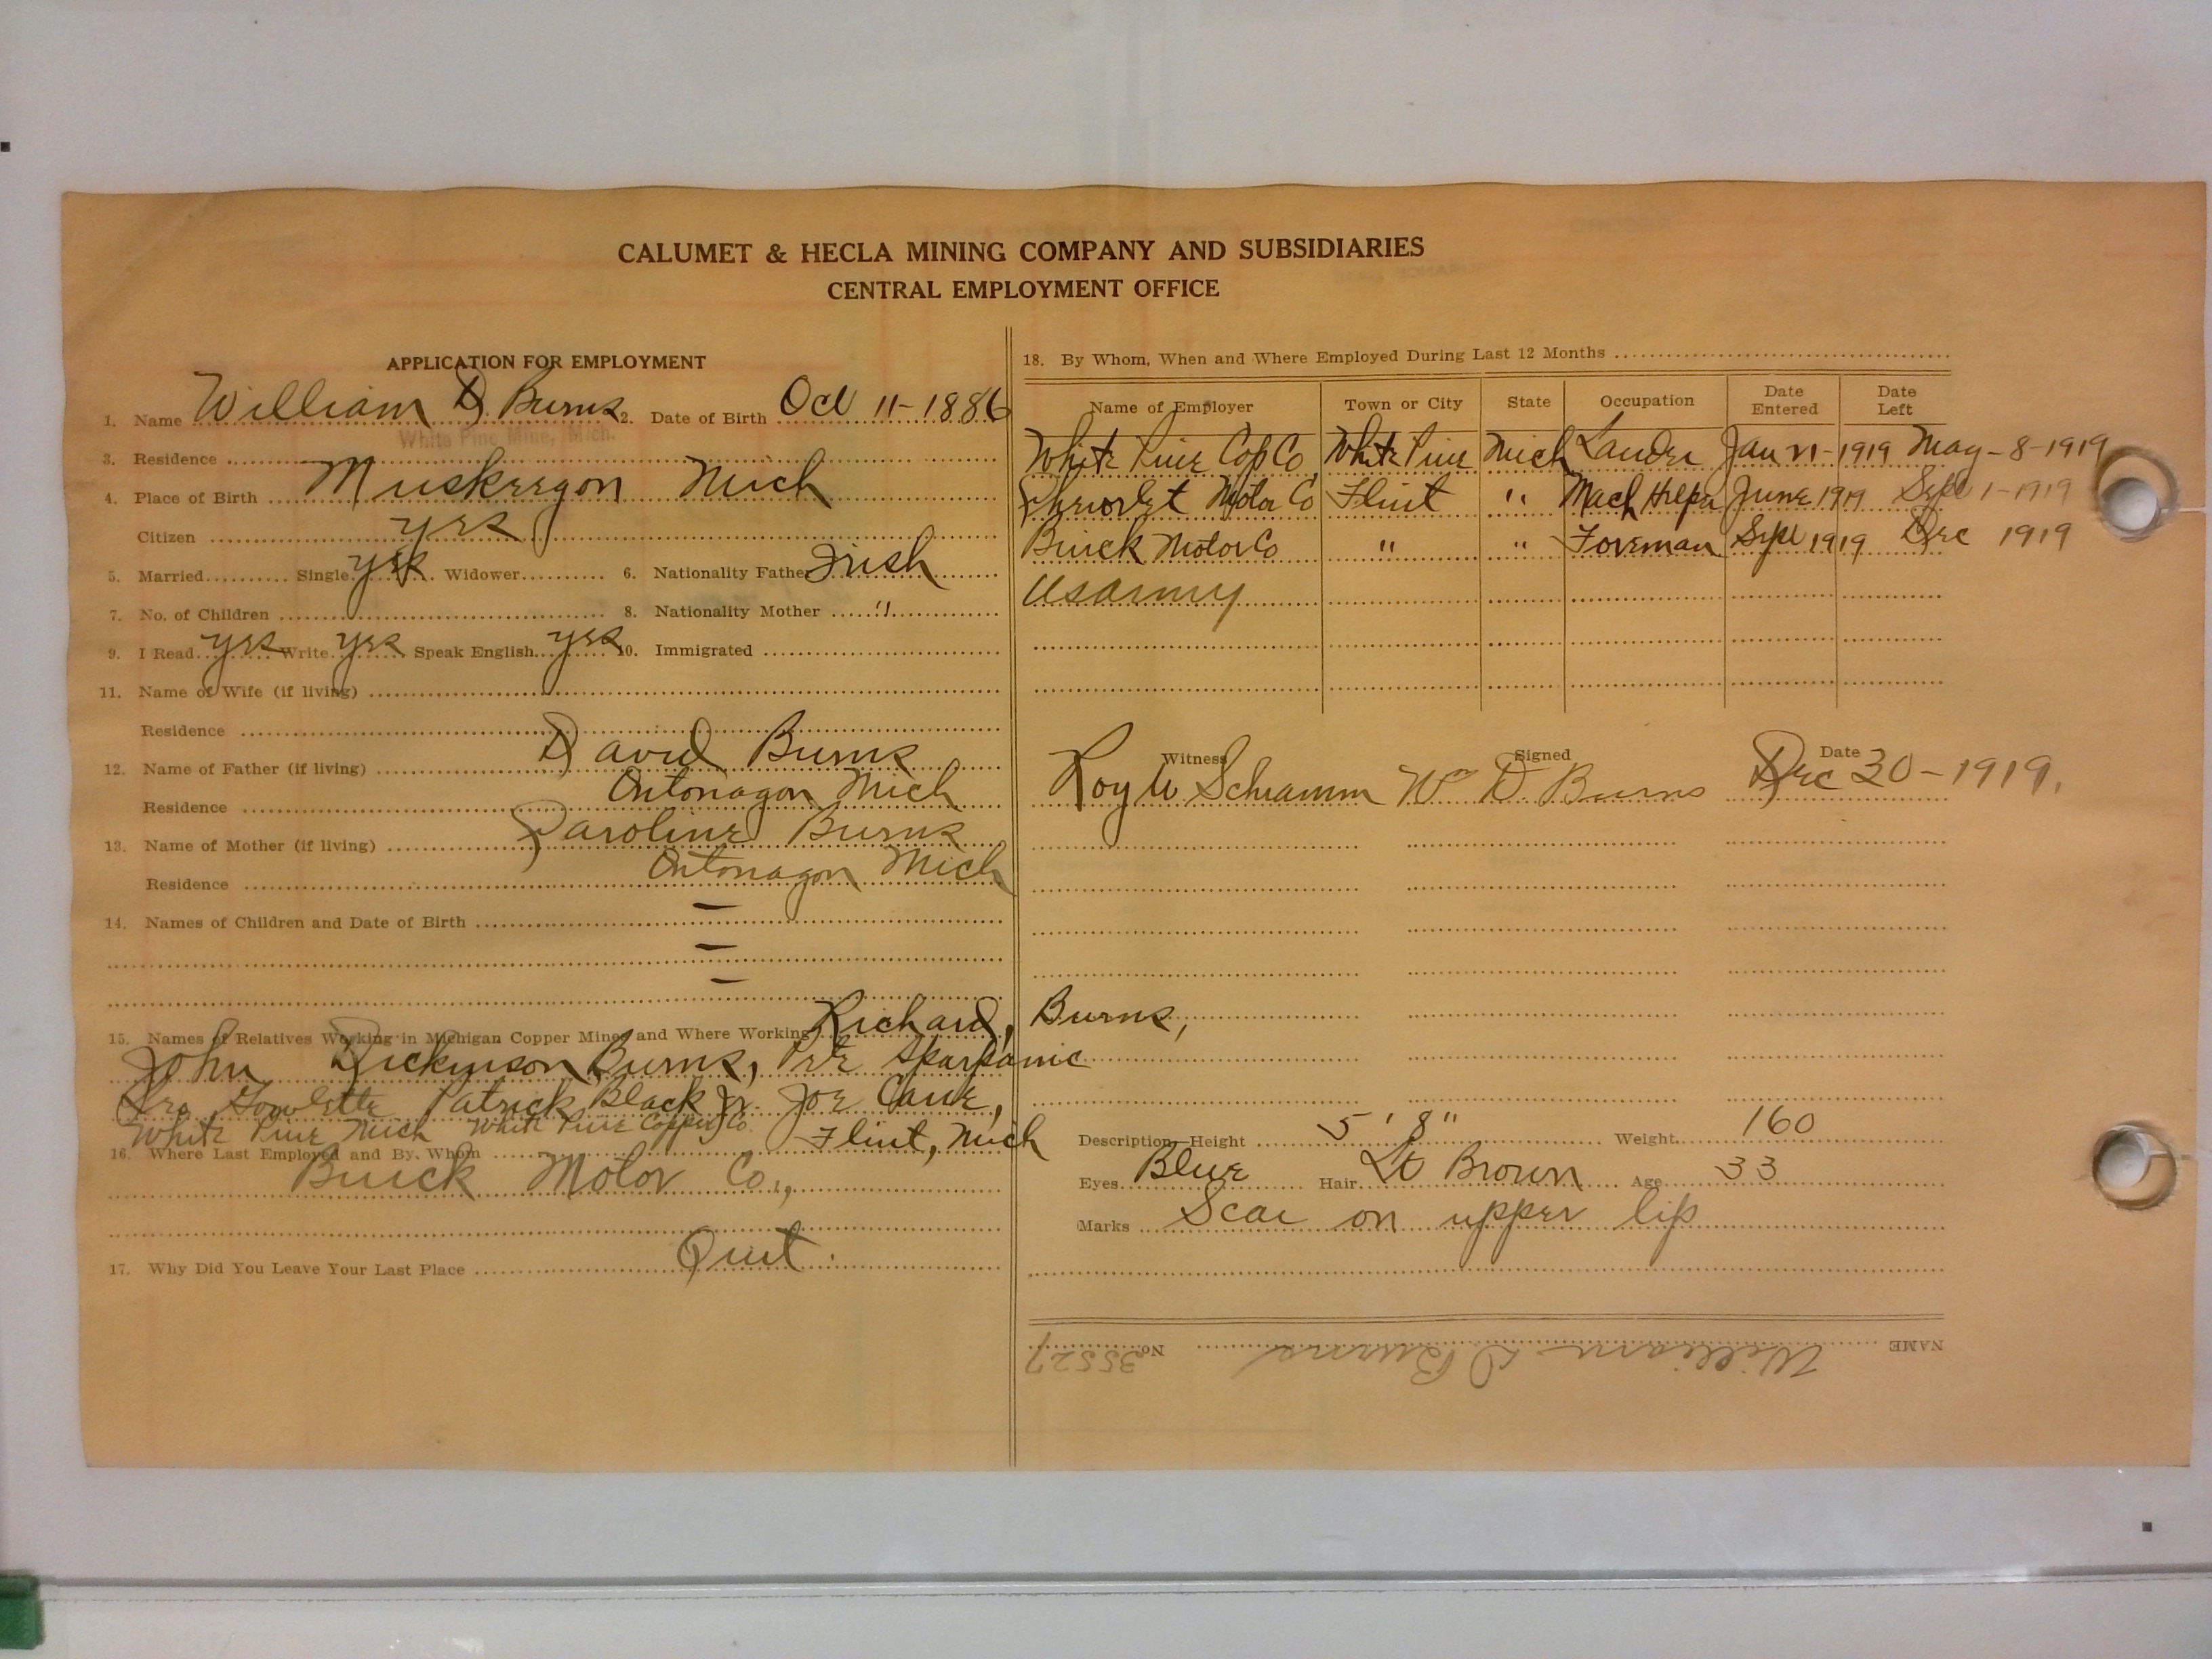 CALUMET & HECLA MINING COMPANY AND SUBSIDIARIES
CENTRAL EMPLOYMENT OFFICE
APPLICATION FOR EMPLOYMENT
1. Name William D. Burns 2. Date of Birth Oct 11-1886
White Pine Mine, Mich.
3. Residence
4. Place of Birth Muskeegon Mich
Citizen yes
5. Married Single yes Widower 6. Nationality Father Irish
7. No. of Children 8. Nationality Mother "
9. I Read yes Write yes Speak English yes 10. Immigrated
11. Name of Wife (if living)
Residence
12. Name of Father (if living) David Burns
Residence Ontonagon Mich
13. Name of Mother (if living) Caroline Burns
Residence Ontonagon Mich
14. Names of Children and Date of Birth —
—
—
15. Names of Relatives Working in Michigan Copper Mines and Where Working Richard, Burns,
John Dickinson Burns, Pete
Patrick Black Jr. Joe
White Pine Mich White Pine Copper Co.
16. Where Last Employed and By Whom Flint, Mich
Buick Motor Co.,
17. Why Did You Leave Your Last Place Quit.
18. By Whom, When and Where Employed During Last 12 Months
Name of Employer Town or City State Occupation Date Entered Date Left
White Pine Cop Co White Pine Mich Lander Jan 21-1919 May-8-1919
Chevorlet Motor Co Flint " Mach Helper June 1919 Sept 1-1919
Buick Motor Co " " Foreman Sept 1919 Dec 1919
US army
Witness Signed Date
Roy W Schramm Wm D. Burns Dec 30-1919.
Description—Height 5' 8" Weight 160
Eyes Blue Hair Lt Brown Age 33
Marks Scar on upper lip
NAME William D Burns No. 35527